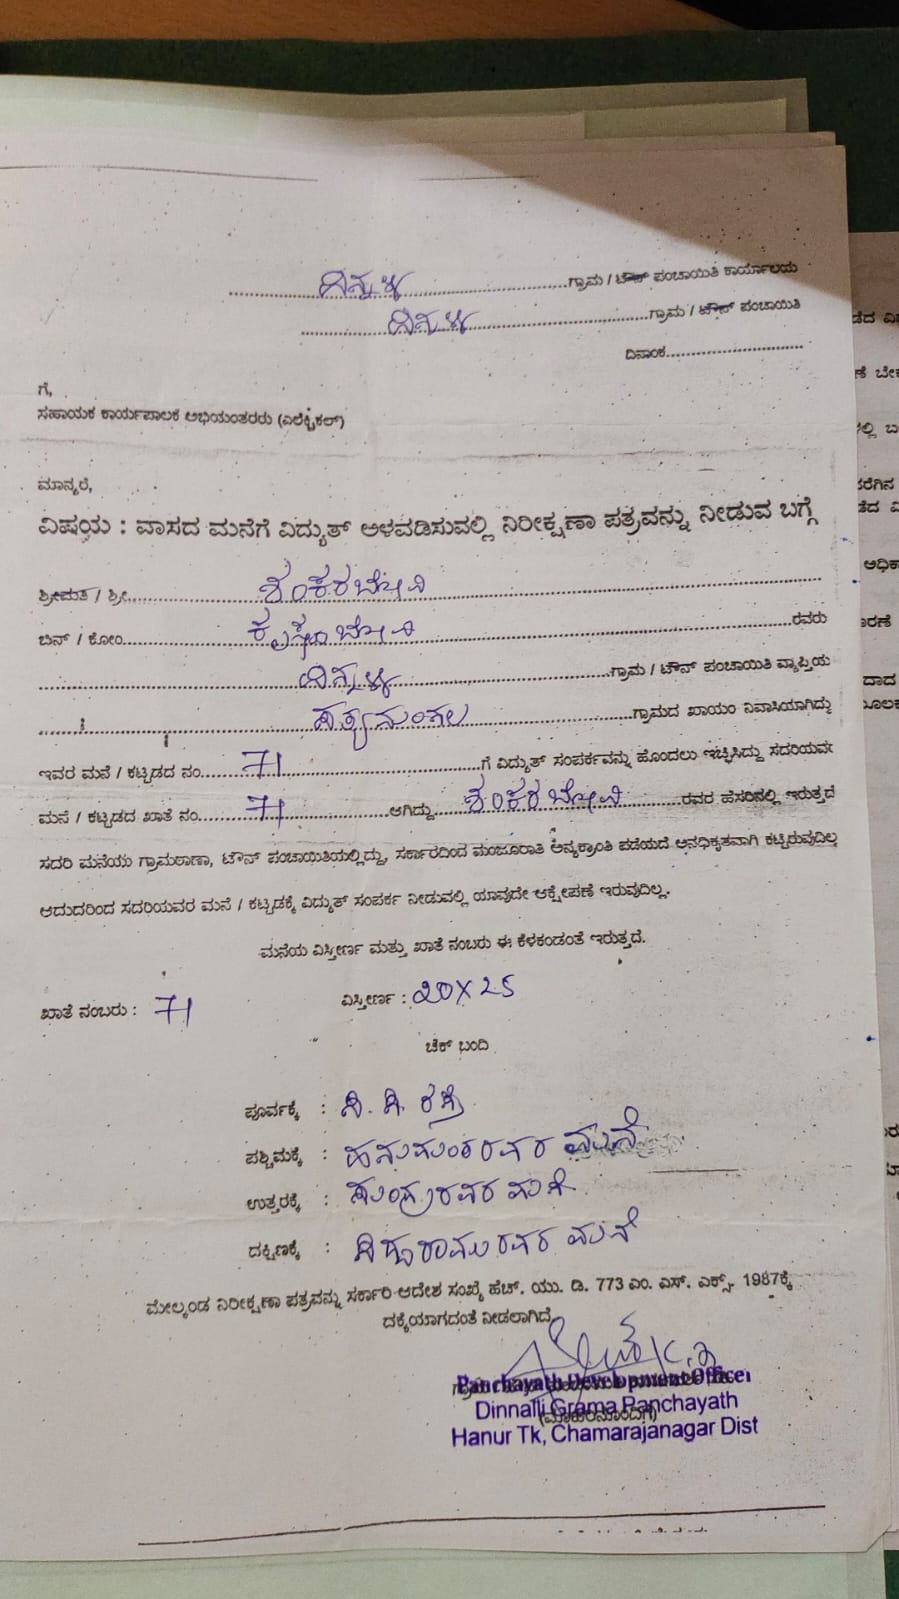 ದಿನ್ನಳ್ಳಿ ಗ್ರಾಮ / ಟೌನ್ ಪಂಚಾಯಿತಿ ಕಾರ್ಯಾಲಯ
ದಿನ್ನಳ್ಳಿ ಗ್ರಾಮ / ಟೌನ್ ಪಂಚಾಯಿತಿ
ದಿನಾಂಕ
ಗೆ,
ಸಹಾಯಕ ಕಾರ್ಯಪಾಲಕ ಅಭಿಯಂತರರು (ಎಲೆಕ್ಟ್ರಿಕಲ್)
ಮಾನ್ಯರೆ,
ವಿಷಯ : ವಾಸದ ಮನೆಗೆ ವಿದ್ಯುತ್ ಅಳವಡಿಸುವಲ್ಲಿ ನಿರೀಕ್ಷಣಾ ಪತ್ರವನ್ನು ನೀಡುವ ಬಗ್ಗೆ
ಶ್ರೀಮತಿ / ಶ್ರೀ ಶಂಕರಬೋವಿ
ಬಿನ್ / ಕೋಂ ಕೃಷ್ಣಬೋವಿ ರವರು
ದಿನ್ನಳ್ಳಿ ಗ್ರಾಮ / ಟೌನ್ ಪಂಚಾಯಿತಿ ವ್ಯಾಪ್ತಿಯ
ಸತ್ಯಮಂಗಲ ಗ್ರಾಮದ ಖಾಯಂ ನಿವಾಸಿಯಾಗಿದ್ದು
ಇವರ ಮನೆ / ಕಟ್ಟಡದ ನಂ. 71 ಗೆ ವಿದ್ಯುತ್ ಸಂಪರ್ಕವನ್ನು ಹೊಂದಲು ಇಚ್ಛಿಸಿದ್ದು ಸದರಿಯವರ
ಮನೆ / ಕಟ್ಟಡದ ಖಾತೆ ನಂ. 71 ಆಗಿದ್ದು ಶಂಕರಬೋವಿ ರವರ ಹೆಸರಿನಲ್ಲಿ ಇರುತ್ತದೆ
ಸದರಿ ಮನೆಯು ಗ್ರಾಮಠಾಣಾ, ಟೌನ್ ಪಂಚಾಯಿತಿಯಲ್ಲಿದ್ದು, ಸರ್ಕಾರದಿಂದ ಮಂಜೂರಾತಿ ಅನ್ಯಕ್ರಾಂತಿ ಪಡೆಯದೆ ಅನಧಿಕೃತವಾಗಿ ಕಟ್ಟಿರುವುದಿಲ್ಲ
ಆದುದರಿಂದ ಸದರಿಯವರ ಮನೆ / ಕಟ್ಟಡಕ್ಕೆ ವಿದ್ಯುತ್ ಸಂಪರ್ಕ ನೀಡುವಲ್ಲಿ ಯಾವುದೇ ಆಕ್ಷೇಪಣೆ ಇರುವುದಿಲ್ಲ.
ಮನೆಯ ವಿಸ್ತೀರ್ಣ ಮತ್ತು ಖಾತೆ ನಂಬರು ಈ ಕೆಳಕಂಡಂತೆ ಇರುತ್ತದೆ.
ಖಾತೆ ನಂಬರು : 71 ವಿಸ್ತೀರ್ಣ : 20X25
ಚೆಕ್ ಬಂದಿ
ಪೂರ್ವಕ್ಕೆ : ಸಿ. ಸಿ. ರಸ್ತೆ
ಪಶ್ಚಿಮಕ್ಕೆ : ಹನುಮಂತರವರ ಮನೆ
ಉತ್ತರಕ್ಕೆ : ರವರ ಮನೆ
ದಕ್ಷಿಣಕ್ಕೆ : ರವರ ಮನೆ
ಮೇಲ್ಕಂಡ ನಿರೀಕ್ಷಣಾ ಪತ್ರವನ್ನು ಸರ್ಕಾರಿ ಆದೇಶ ಸಂಖ್ಯೆ ಹೆಚ್. ಯು. ಡಿ. 773 ಎಂ. ಎಸ್. ಎಕ್ಸ್. 1987ಕ್ಕೆ
ದಕ್ಕೆಯಾಗದಂತೆ ನೀಡಲಾಗಿದೆ
Panchayath Development Officer
Dinnalli Grama Panchayath
(ಮೊಹರಿನೊಂದಿಗೆ)
Hanur Tk, Chamarajanagar Dist